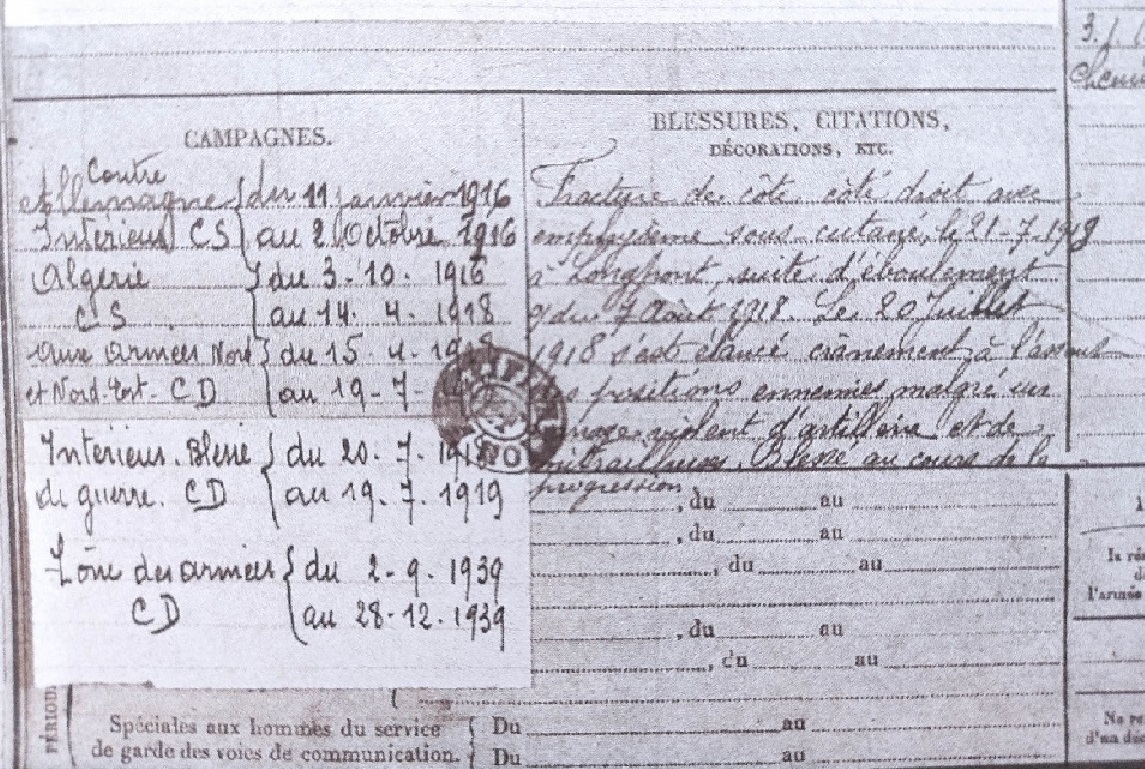 3. j.
Chemi
CAMPAGNES.
Contre
Allemagne { du 11 janvier 1916
Intérieur CS { au 2 Octobre 1916
Algérie { du 3-10-1916
CS { au 14. 4. 1918
aux armées Nord { du 15. 4. 1918
et Nord-Est. CD { au 19-7-
Intérieur. Blessé { du 20. 7. 1918
de guerre. CD { au 19. 7. 1919
Zône des armées { du 2-9. 1939
CD { au 28-12. 1939
BLESSURES, CITATIONS,
DÉCORATIONS, ETC.
Fracture de côte côté droit avec
emphysème sous-cutané, le 21-7-1918
à Longpont, suite d'éboulement
du 7 Août 1918. Le 20 Juillet
1918 s'est élancé crânement à l'assaut
positions ennemies malgré un
violent d'artillerie et de
mitrailleuses. Blessé au cours de la
progression
, du au
, du au
, du au
, du au
, du au
PÉRIOD
Spéciales aux hommes du service { Du au
de garde des voies de communication. { Du au
l'armée